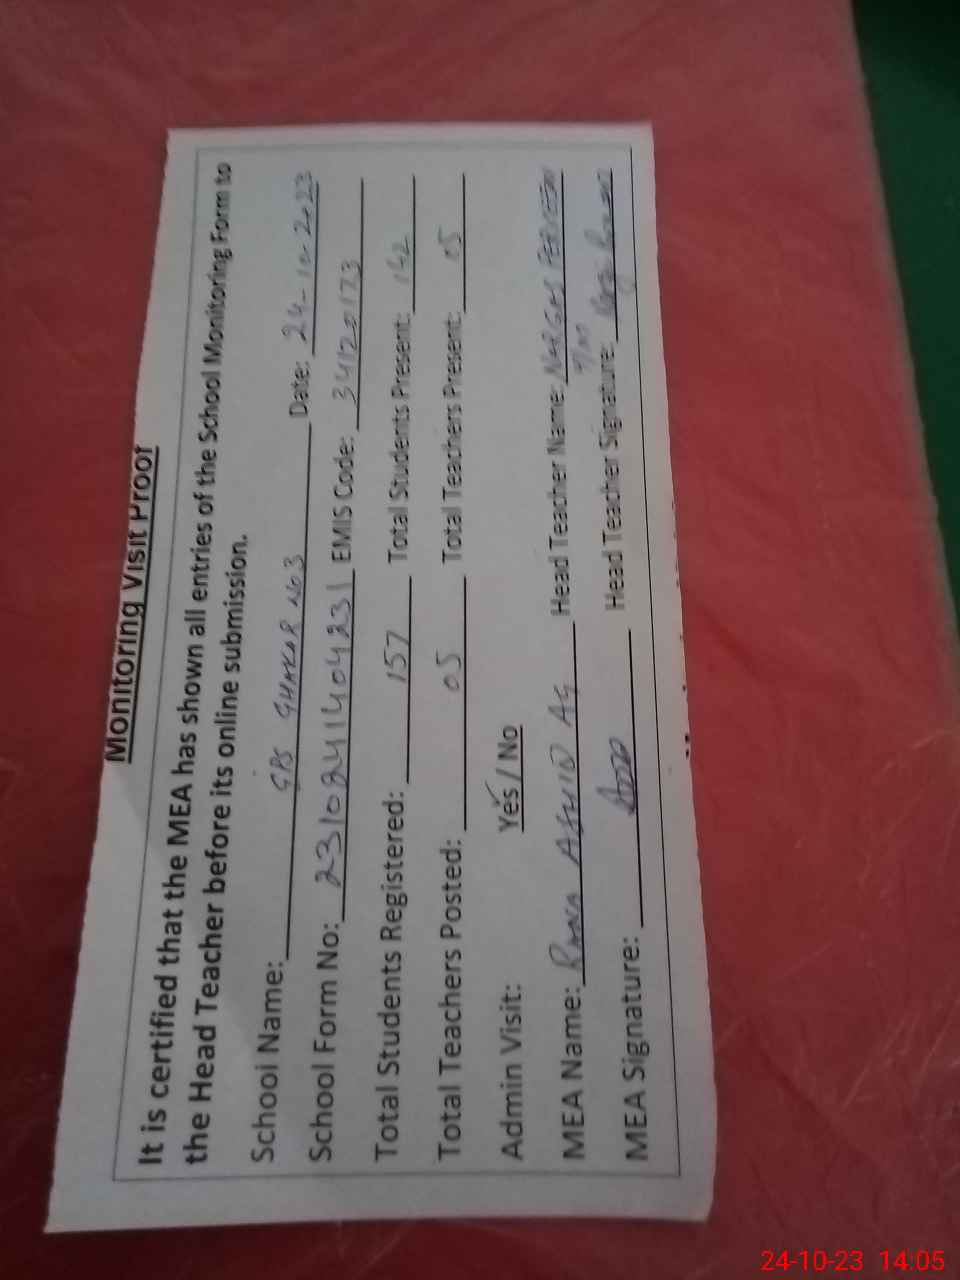 Monitoring Visit Proof
It is certified that the MEA has shown all entries of the School Monitoring Form to
the Head Teacher before its online submission.
School Name: GPS GHAKAR NO3 Date: 24-10-2023
School Form No: 2310241404231 EMIS Code: 34120173
Total Students Registered: 157 Total Students Present: 142
Total Teachers Posted: 05 Total Teachers Present: 05
Admin Visit: Yes / No
MEA Name: RANA Head Teacher Name: NARGAS PERVEEN
MEA Signature: Head Teacher Signature:
24-10-23 14:05